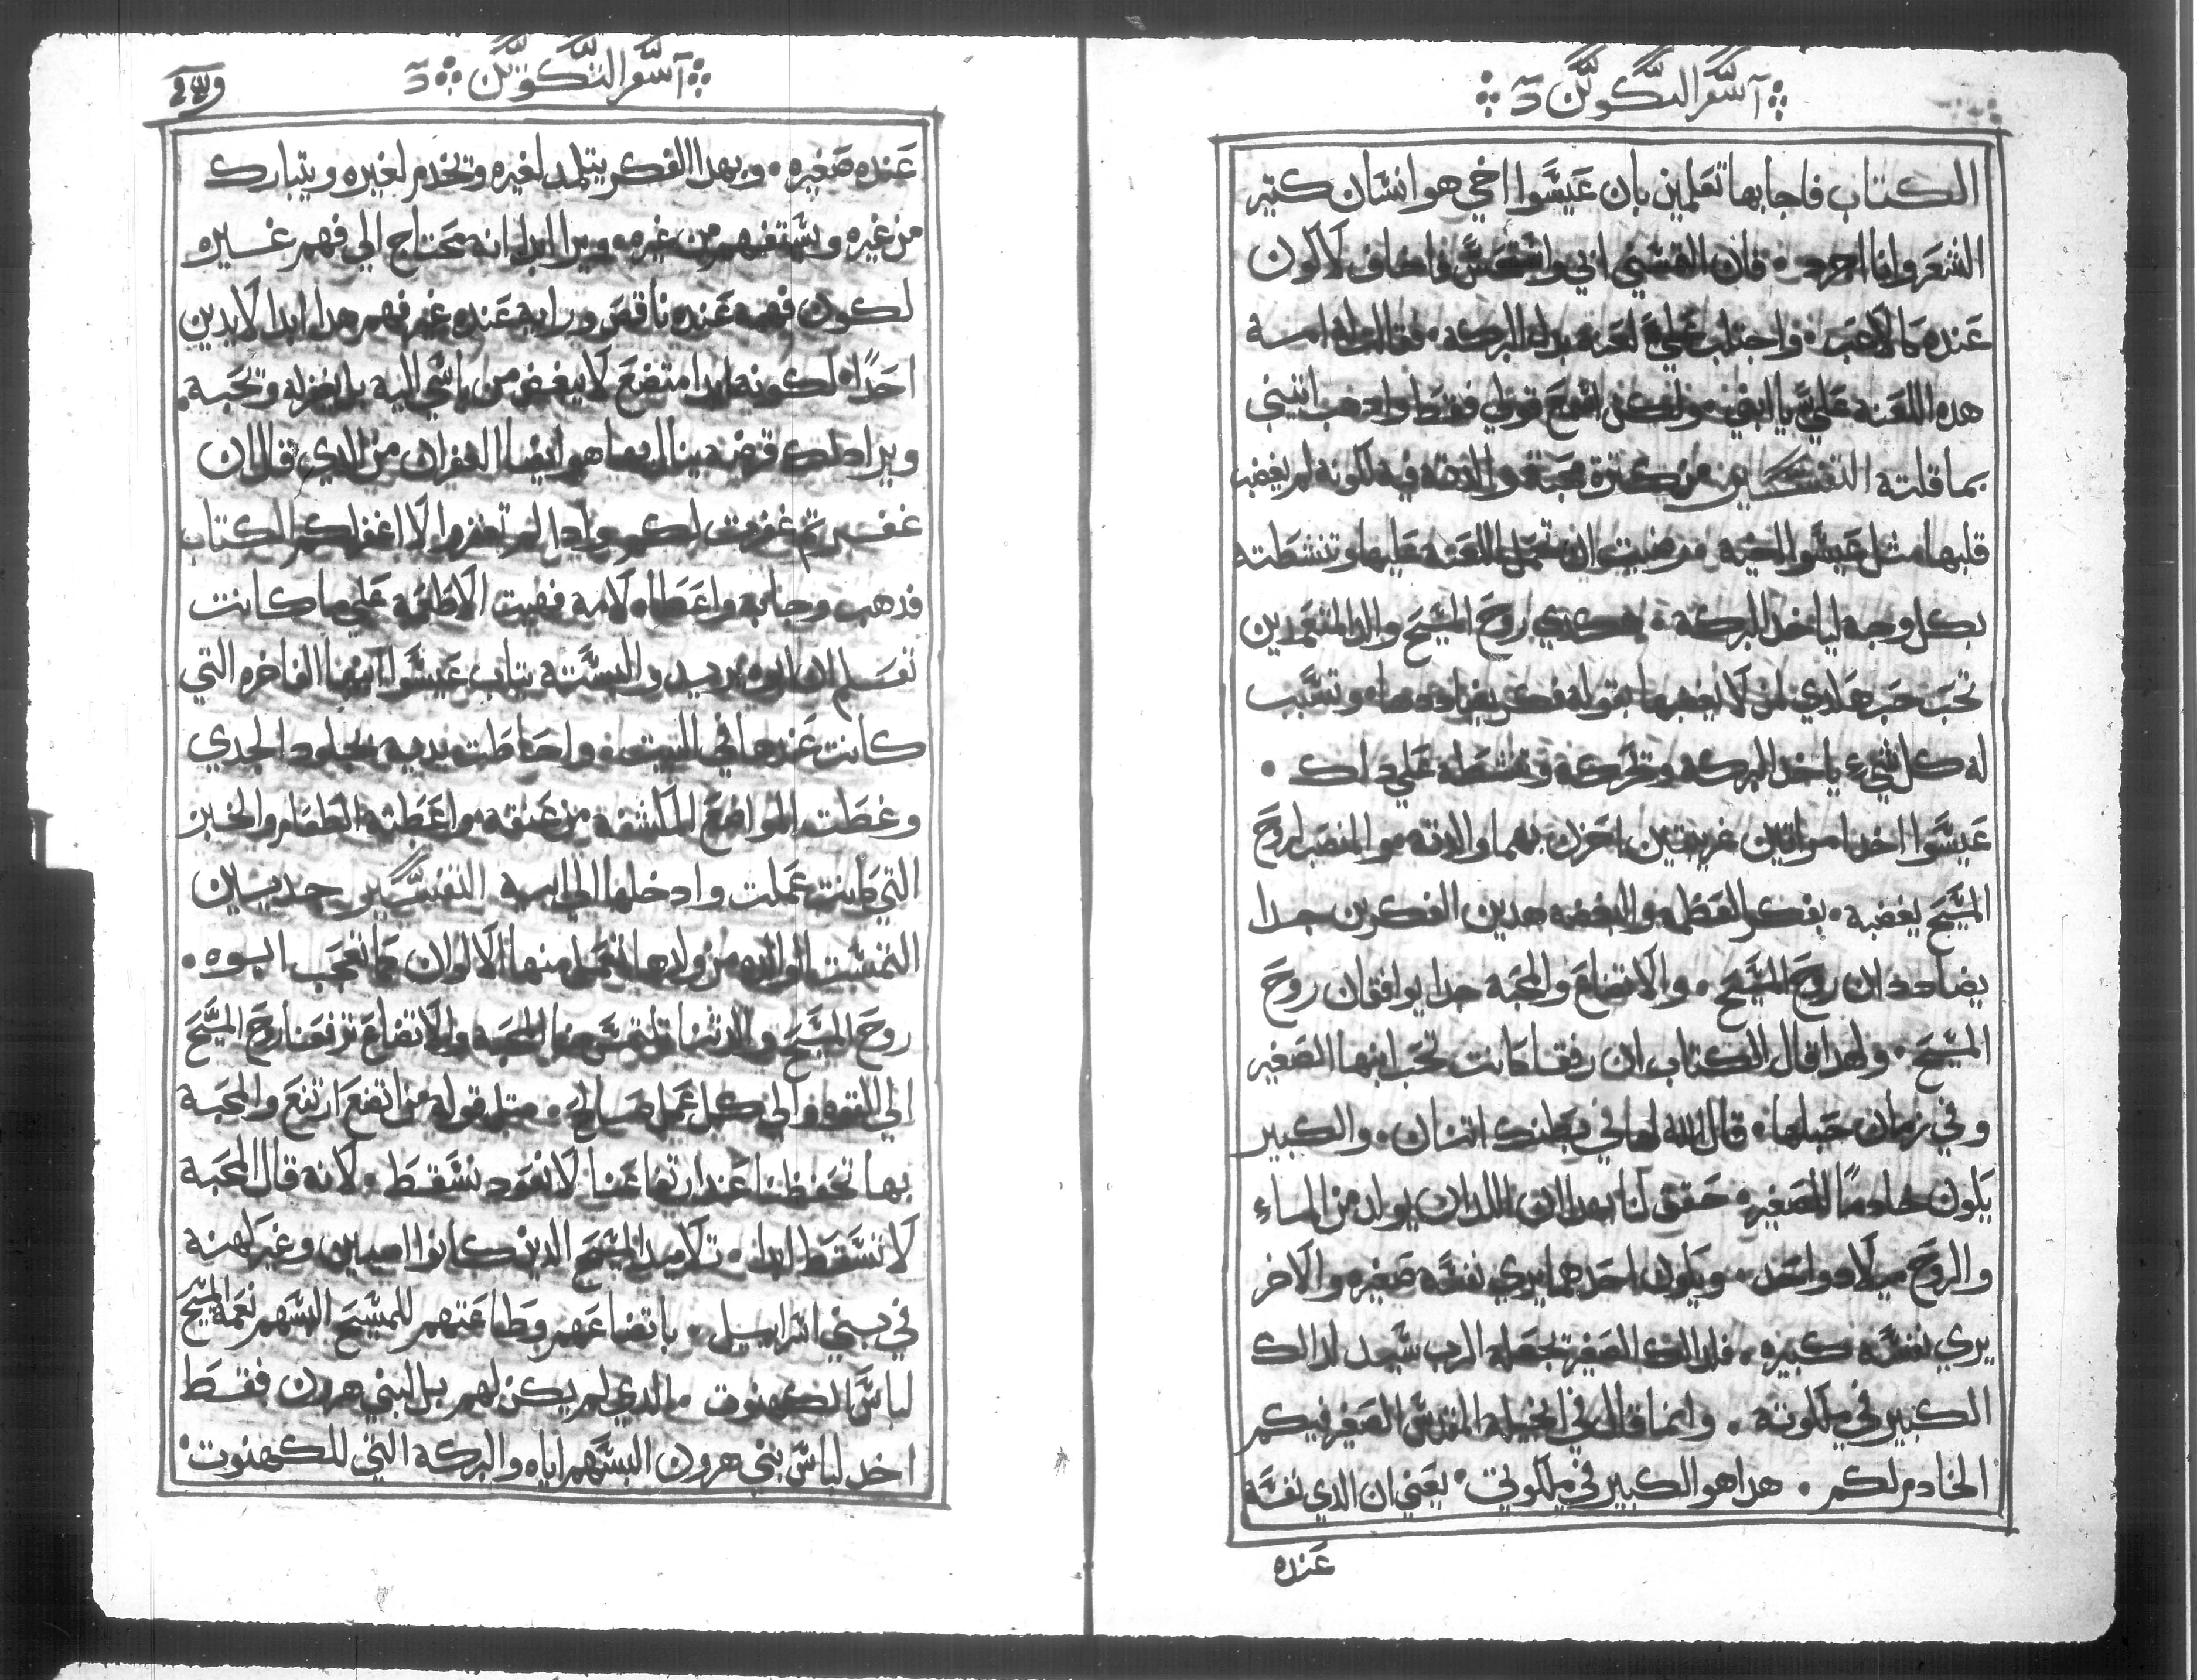 آسفر التكوين
الكتاب فاجابها تعلمين بان عيسوا اخي هو انسان كتير
الشعر وانا اجرد فان القسني ابي واتقسس فاخاف لاكون
عنده كالاعب واجتلب علي لعنه بدل البركه فقالت له امه
هده اللعنه علي يا ابني ولكن اسمع قولي فقط وادهب اتيني
بما قلته التفسير من كترة محبة والدته فيه لكونه لم يغضب
قلبها متل عيسوا اخيه رضيت ان تحمل اللعنه عليها وتنشطته
بكل وجه لياخد البركه هكدي روح المسيح والد المتعمدين
تحب حب هادي لمن لا يغضبها بقوله فكر يضاددها وتسبب
له كل شيء ياخد البركه وتحركه وتنشطه علي دلك
عيسوا اخد امراتين غريبتين احزن بهما والدته هو المنصب لروح
المسيح يغضبه بفكر العظمه والبغضه هدين الفكرين جدا
يضاددان روح المسيح والاتضاع والمحبه جدا يوافقان روح
المسيح ولهدا قال الكتاب ان رفقا كانت تحب ابنها الصغير
وفي زمان حبلها قال الله لها في بطنك اتنان والكبير
يكون خادمًا للصغير حقق لنا بهدا ان اللدان يولد من الماء
والروح ميلاد واحد ويكون احدهما يري نفسه صغيره والاخر
يري نفسه كبيره فدلك الصغير تجعله الرب سيد لدالك
الكبير في ملكوته وانما قال في انجيله المقدس الصغير فيكم
الخادم لكم هدا هو الكبير في ملكوتي يعني ان الدي نفسه
عنده
آسفر التكوين
عنده صغيره وبهدا الفكر يتلمد لغيره وتخدم لغيره ويتبارك
من غيره ويستفهم من غيره ويرا ابدا انه محتاج الي فهم غيره
لكون فهمه عنده ناقص ورايه عنده غير فهم هدا ابدا لا يدين
احدًا لكونه ابدا متضع لا يبغض من ياسي اليه بل يغفر له وتحبه
ويرا دلك فرضه ينال بها هو ايضا الغفران من الدي قال ان
غفرتم غفرت لكم وادا لم تغفروا لا اغفر لكم الكتاب
فدهب وجابه واعطاه لامه فهيت الاطعمه علي ما كانت
تعلم ان ابوه يريد والبسته تياب عيسوا ابنها الفاخره التي
كانت عندها في البيت واحاطت يديه بجلود الجدي
وغطت المواضع المكشفه من عنقه واعطته الطعام والخبز
التي كانت عملت وادخلها الي ابيه التفسير جديين
التمست الوالده من ولدها لتعمل منها الالوان كما تحب ابوه
روح المسيح والدتنا تلتمس منا المحبه والاتضاع ترفعنا روح المسيح
الي التقوه والي كل عمل صالح متل قوله من اتضع ارتفع والمحبه
بها تحفظنا عند ارتفاعنا لا نعود نسقط لانه قال المحبه
لا تسقط ابدا تلاميد المسيح الدين كانوا اميين وغير كهنه
في بني اسراييل باتضاعهم وطاعتهم للمسيح البسهم نعمة المسيح
لباس الكهنوت الدي لم يكن لهم بل لبني هرون فقط
اخد لباس بني هرون البسهم اياه والبركه التي للكهنوت